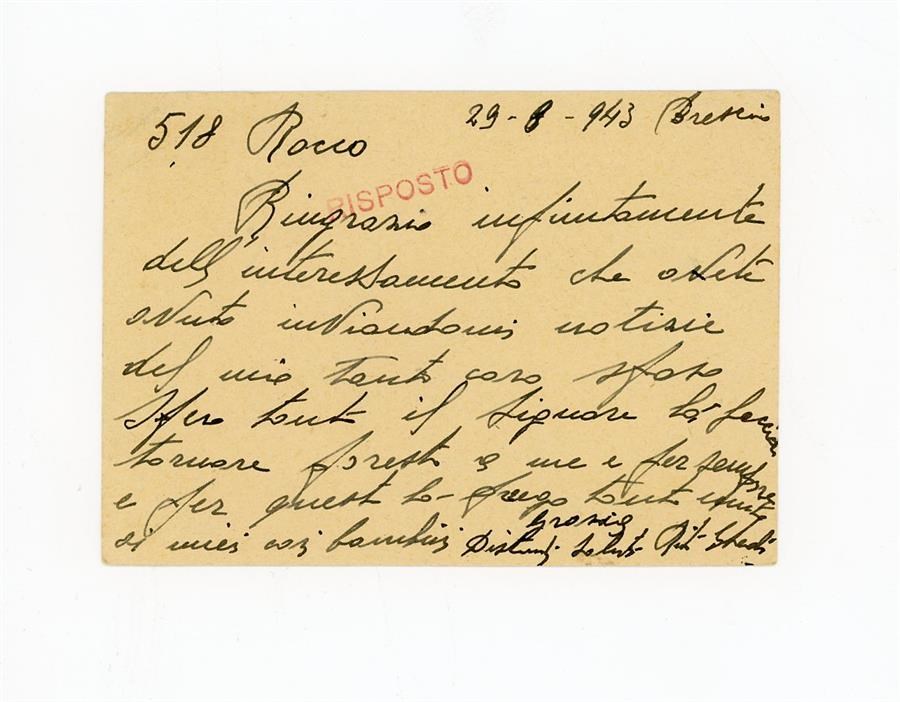 518 Rocco 29-8-943 Brescia
RISPOSTO
Ringrazio infinitamente
dell'interessamento che avete
avuto inviandomi notizie
del mio tanto caro sposo
Spero tanto il Signore lo faccia
tornare presto a me e per sempre
e per questo lo prego tanto unita
ai miei cari bambini grazie
Distinti saluti